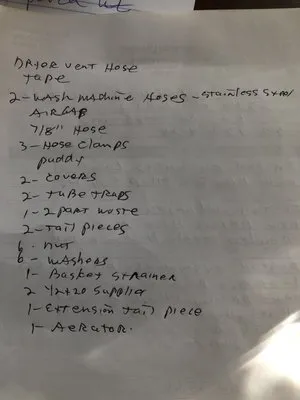 DRYER VENT HOSE
TAPE
2-WASH MACHINE HOSES - STAINLESS STEEL
AIRGAP
7/8" HOSE
3-HOSE CLAMPS
PUDDY
2-COVERS
2-TUBE TRAPS
1-2 PART WASTE
2-TAIL PIECES
6-NUT
6-WASHERS
1-BASKET STRAINER
2 1/2x20 SUPPLIER
1-EXTENSION TAIL PIECE
1-AERATOR.